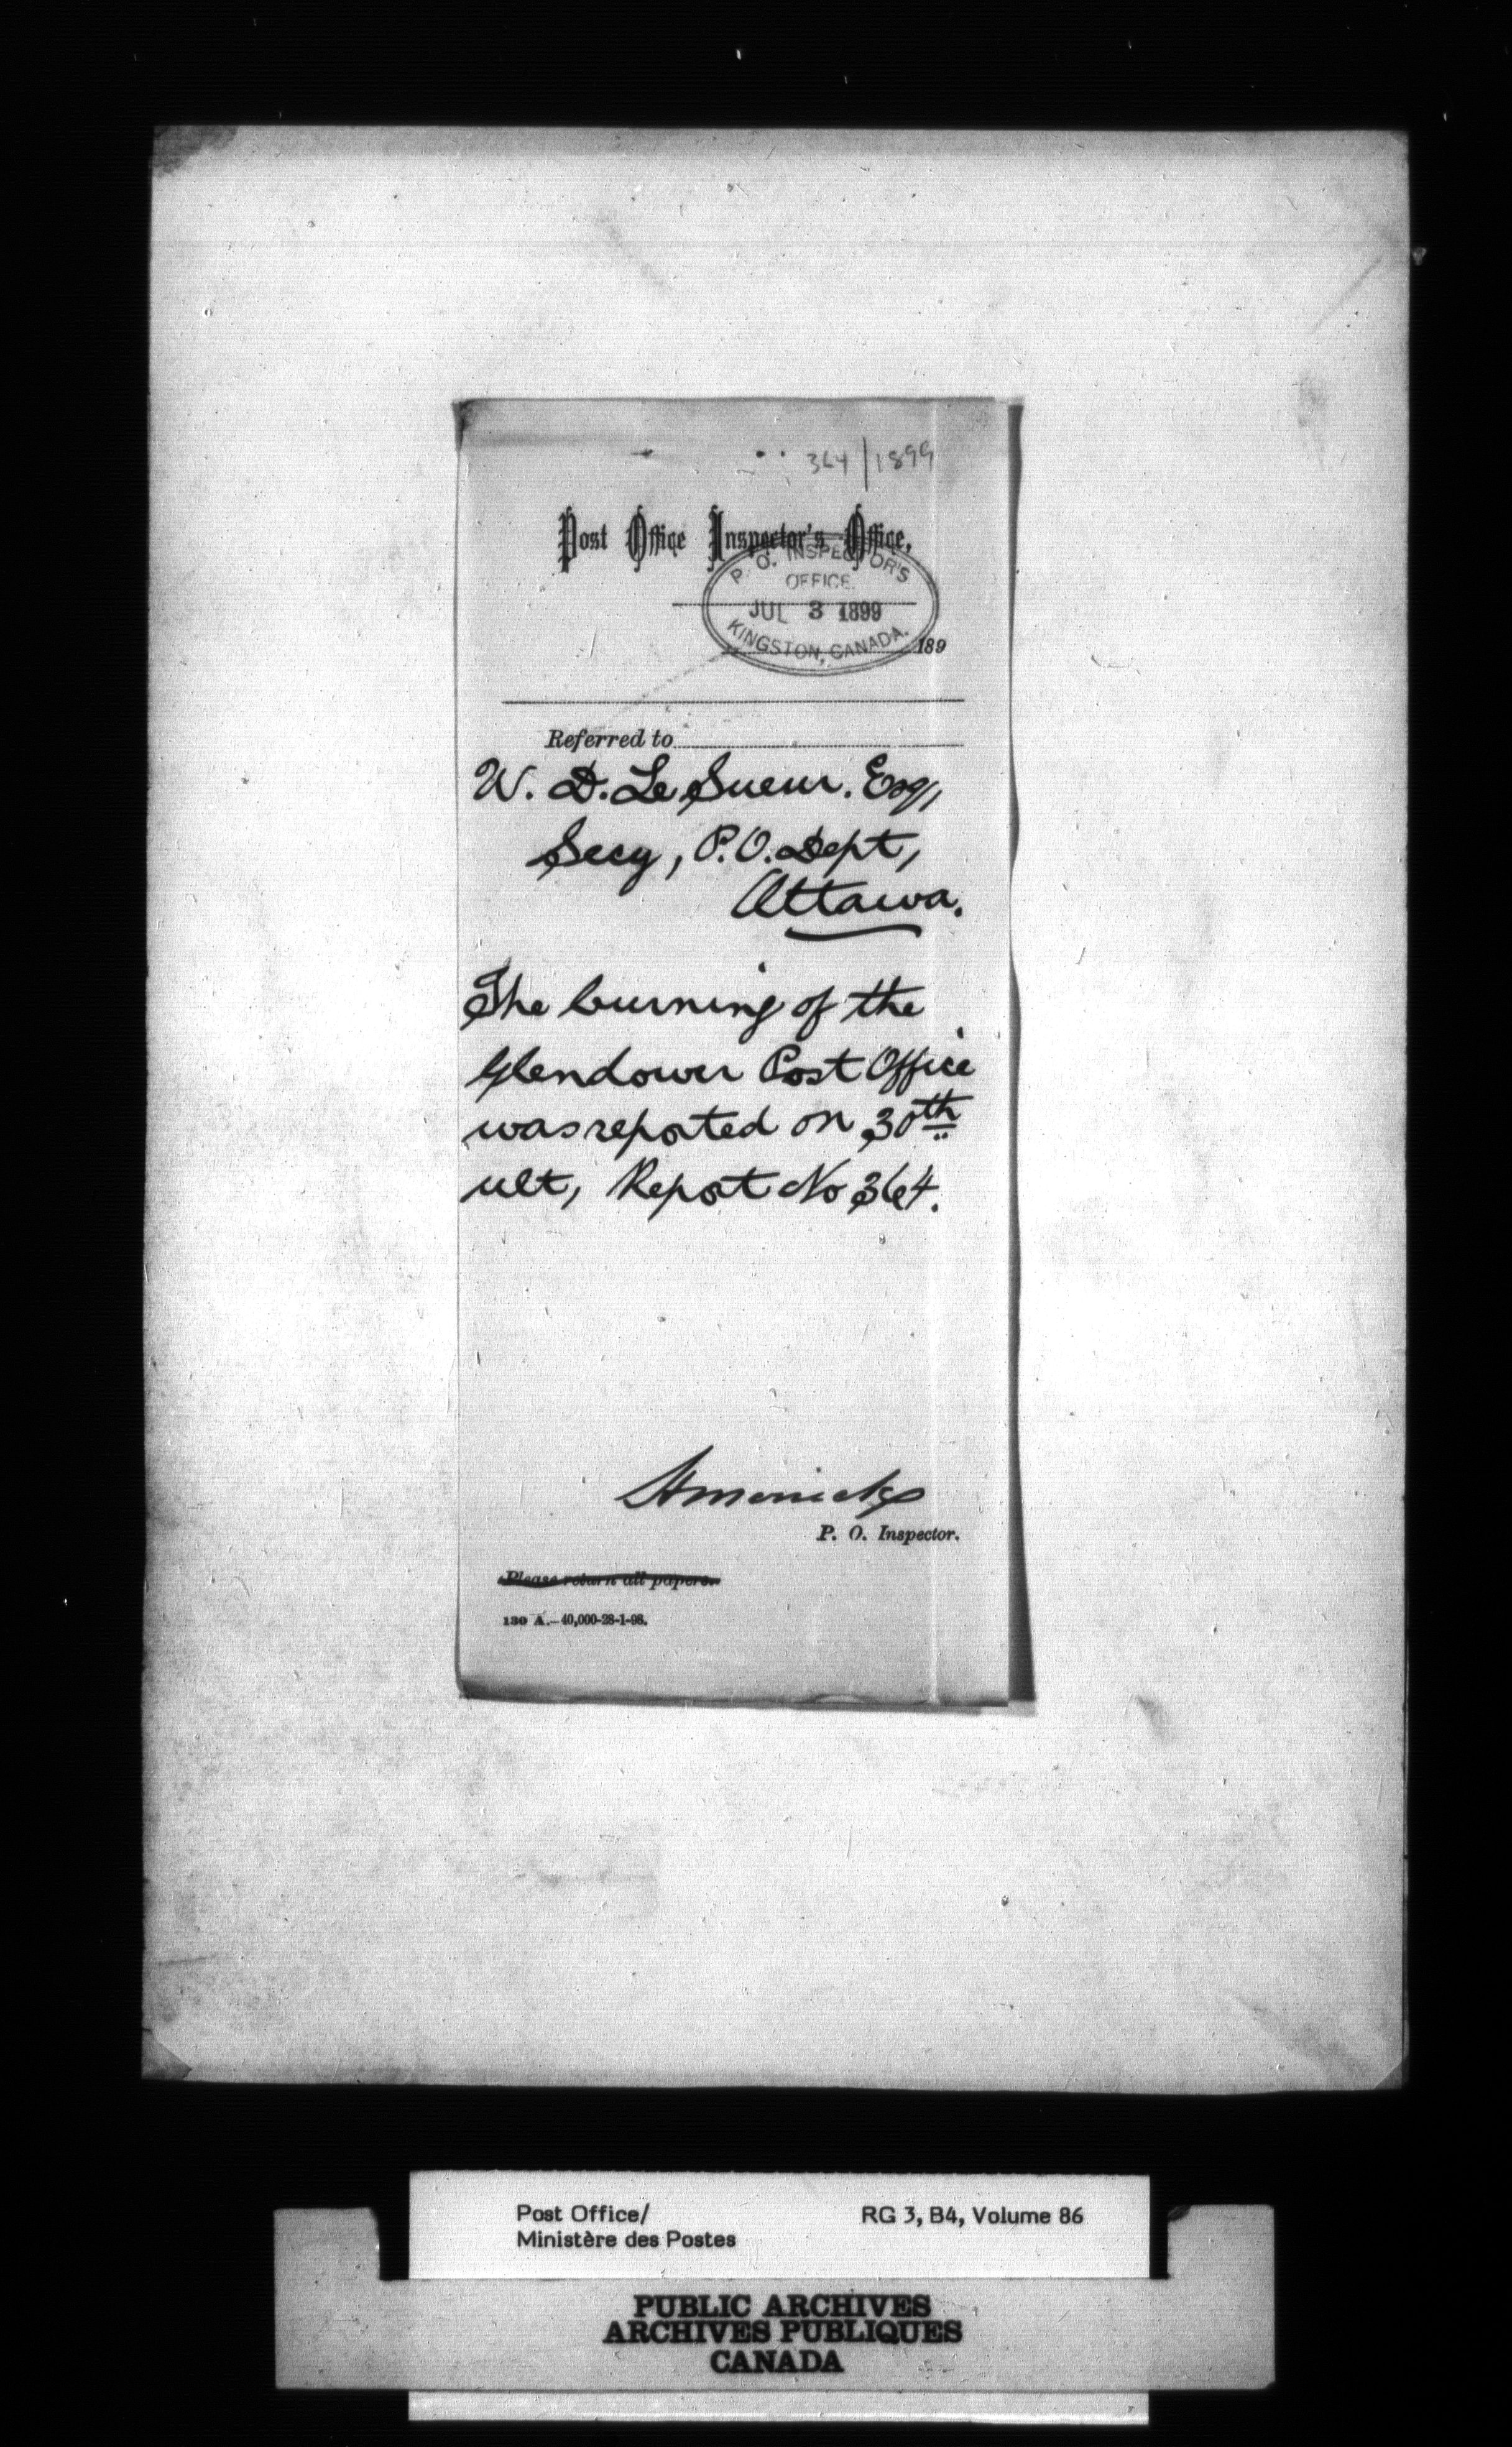 364/1899
Post Office Inspector's Office,
P. O. INSPECTOR'S
OFFICE.
JUL 3 1899
KINGSTON, CANADA.
189
Referred to
W. D. Le Sueur. Esq,
Secy, P.O. Dept,
Ottawa.
The burning of the
Glendower Post Office
was reported on 30th
ult, Report No 364.
P. O. Inspector.
Please return all papers.
130 A.—40,000-28-1-98.
Post Office/
Ministère des Postes
RG 3, B4, Volume 86
PUBLIC ARCHIVES
ARCHIVES PUBLIQUES
CANADA